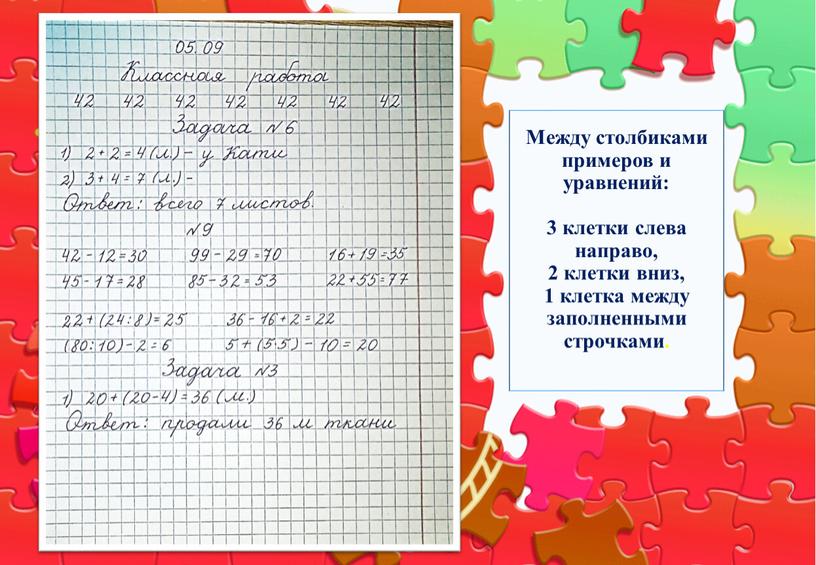 05.09
Классная работа
42 42 42 42 42 42 42
Задача №6
1) 2 + 2 = 4 (л.) - у Кати
2) 3 + 4 = 7 (л.) -
Ответ: всего 7 листов.
№9
42 - 12 = 30 99 - 29 = 70 16 + 19 = 35
45 - 17 = 28 85 - 32 = 53 22 + 55 = 77
22 + (24 : 8) = 25 36 - 16 + 2 = 22
(80 : 10) - 2 = 6 5 + (5·5) - 10 = 20
Задача №3
1) 20 + (20 - 4) = 36 (м.)
Ответ: продали 36 м ткани
Между столбиками
примеров и
уравнений:
3 клетки слева
направо,
2 клетки вниз,
1 клетка между
заполненными
строчками.